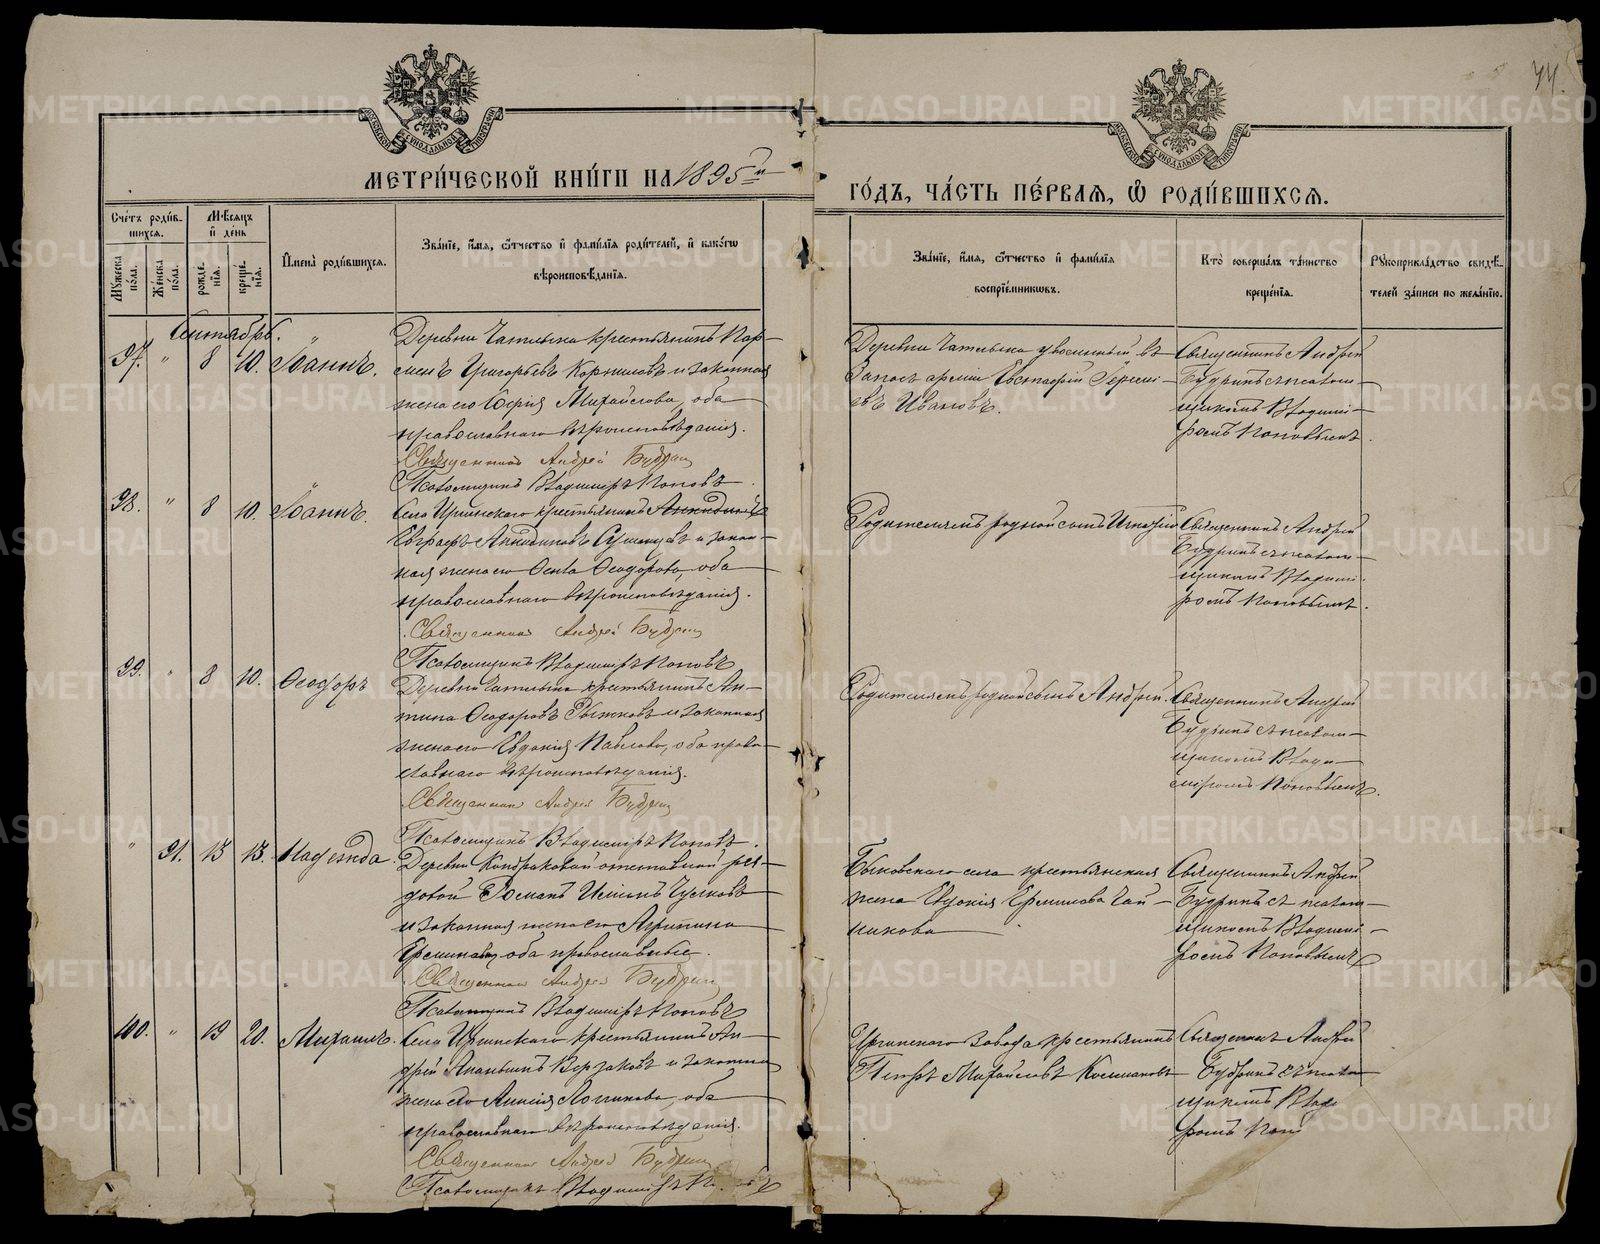 44.
МОСКОВСКОЙ СИНОДАЛЬНОЙ ТИПОГРАФІИ
МОСКОВСКОЙ СИНОДАЛЬНОЙ ТИПОГРАФІИ
МЕТРИ́ЧЕСКОЙ КНИ́ГИ НА 1895й
ГО́ДЪ, ЧА́СТЬ ПЕ́РВАЯ, Ѡ РОДИ́ВШИХСЯ.
Сче́тъ роди́в-
шихся.
Му́жеска по́ла.
Же́нска по́ла.
Мѣ́сяцъ
и де́нь
рожде́-
нїя.
креще́-
нїя.
И҆мена̀ роди́вшихся.
Зва́нїе, и҆́мя, ѻ҆́тчество и҆ фами́лїя роди́телей, и҆ како́гѡ
вѣроисповѣ́данїя.
Зва́нїе, и҆́мя, ѻ҆́тчество и҆ фами́лїя
воспрїе́мникѡвъ.
Кто̀ соверша́лъ та́инство
креще́нїя.
Рꙋкоприкла́дство свидѣ́-
телей за́писи по жела́нїю.
Сентябрь.
97. " 8 10. Іоаннъ.
Деревни крестьянинъ Пар-
менъ Григорьевъ Корниловъ и законная
жена его Софія Михайлова, оба
православнаго вѣроисповѣданія.
Священникъ Андрей Будринъ
Псаломщикъ Владиміръ Поповъ
Деревни уволенный въ
запасъ арміи Евстафій
евъ Ивановъ.
Священникъ Андрей
Будринъ съ псалом-
щикомъ Владимі-
ромъ Поповымъ.
98. " 8 10. Іоаннъ.
Села Иргинскаго крестьянинъ
Евграфъ и закон-
ная жена его Ѳекла Ѳеодорова, оба
православнаго вѣроисповѣданія.
Священникъ Андрей Будринъ
Псаломщикъ Владиміръ Поповъ
Родителямъ родной сынъ Игнатій
Священникъ Андрей
Будринъ съ псалом-
щикомъ Владимі-
ромъ Поповымъ.
99. " 8 10. Ѳеодоръ
Деревни крестьянинъ Ан-
типа Ѳеодоровъ и законная
жена его Евдокія Павлова, оба право-
славнаго вѣроисповѣданія.
Священникъ Андрей Будринъ
Псаломщикъ Владиміръ Поповъ.
Родителямъ родной сынъ Андрей.
Священникъ Андрей
Будринъ съ псалом-
щикомъ Влади-
міромъ Поповымъ.
" 91. 13 13. Надежда.
Деревни Кондраковой отставной ря-
довой Романъ
и законная жена его Агрипина
Еремина, оба православные.
Священникъ Андрей Будринъ
Псаломщикъ Владиміръ Поповъ
Быковскаго села крестьянская
жена Евдокія Ермилова
Священникъ Андрей
Будринъ съ псалом-
щикомъ Владимі-
ромъ Поповымъ
100. " 19 20. Михаилъ.
Села Иргинскаго крестьянинъ Ан-
дрей Ананьинъ и законная
жена его Анисія Логинова, оба
православнаго вѣроисповѣданія.
Священникъ Андрей Будринъ
Псаломщикъ Владиміръ
Иргинскаго Завода крестьянинъ
Петръ Михайловъ
Священникъ Андрей
Будринъ съ псалом
щикомъ Влад
ромъ Поп
METRIKI.GASO-URAL.RU